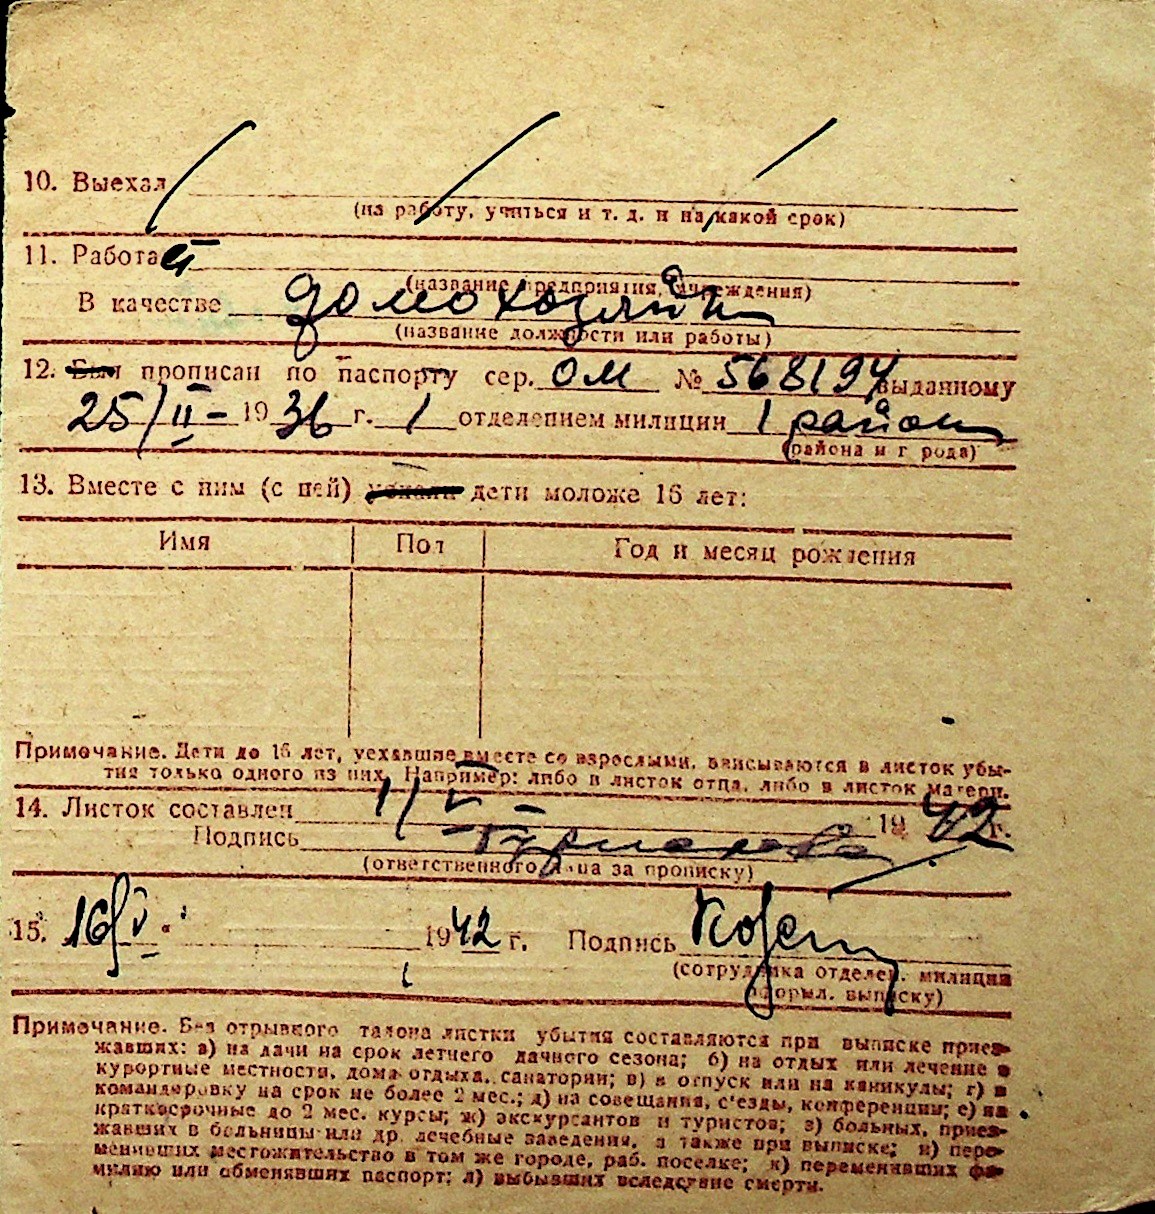 10. Выехал
(на работу, учиться и т. д. и на какой срок)
11. Работает
(название предприятия, учреждения)
В качестве домохозяйки
(название должности или работы)
12. Был прописан по паспорту сер. ОМ № 568194 выданному
25/II - 1936 г. 1 отделением милиции 1 район
(района и г рода)
13. Вместе с ним (с ней) уехали дети моложе 16 лет:
Имя Пол Год и месяц рождения
Примечание. Дети до 16 лет, уехавшие вместе со взрослыми, вписываются в листок убы-
тия только одного из них. Например: либо в листок отца, либо в листок матери.
14. Листок составлен 1/V - 1942 г.
Подпись
(ответственного лица за прописку)
15. 16/V 1942 г. Подпись
(сотрудника отделен. милиции
оформл. выписку)
Примечание. Без отрывного талона листки убытия составляются при выписке приез-
жавших: а) на дачи на срок летнего дачного сезона; б) на отдых или лечение в
курортные местности, дома отдыха, санатории; в) в отпуск или на каникулы; г) в
командировку на срок не более 2 мес.; д) на совещания, с'езды, конференции; е) на
краткосрочные до 2 мес. курсы; ж) экскурсантов и туристов; з) больных, приез-
жавших в больницы или др. лечебные заведения, а также при выписке; и) пере-
менивших местожительство в том же городе, раб. поселке; к) переменивших фа-
милию или обменявших паспорт; л) выбывших вследствие смерти.